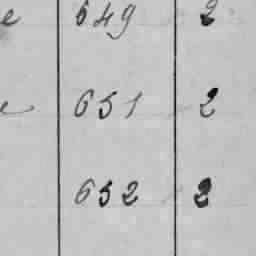 e 649 2
e 651 2
652 2